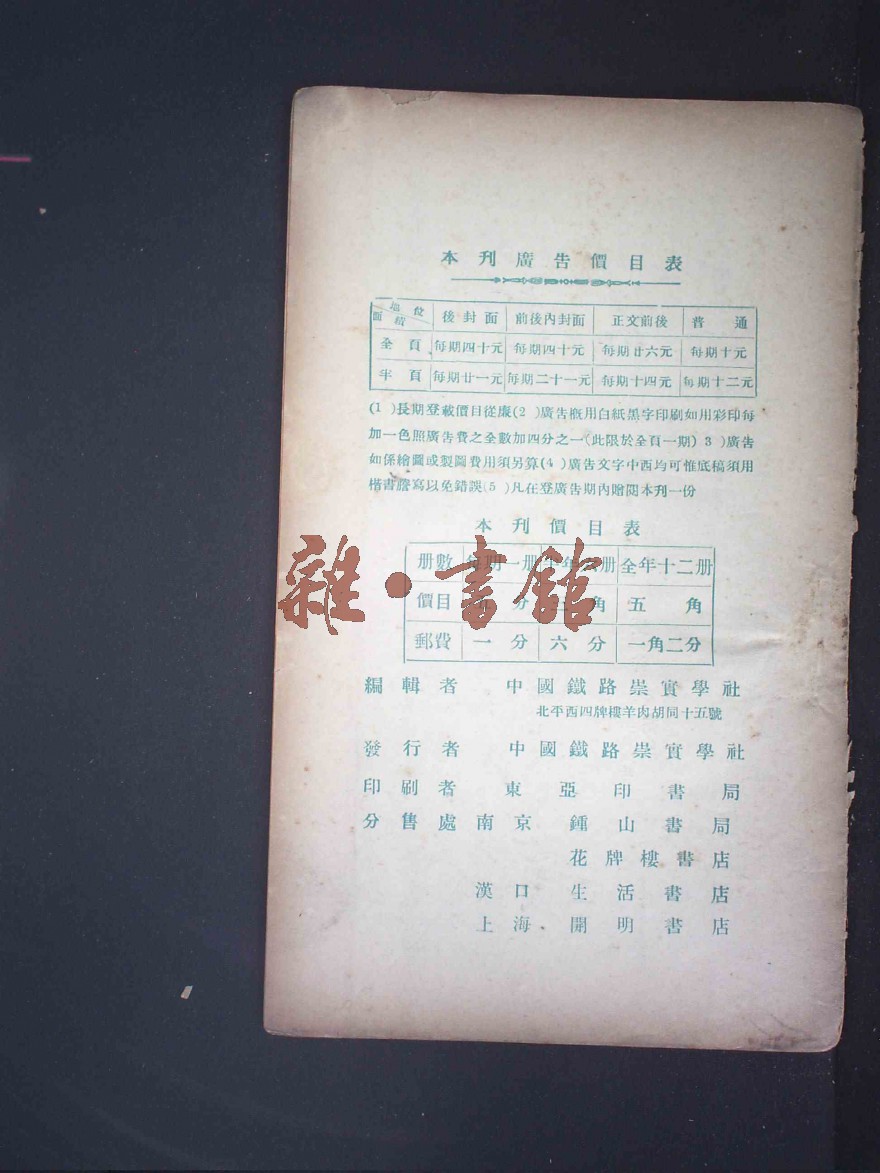 本刊廣告價目表
面積 地位 後封面 前後內封面 正文前後 普通
全頁 每期四十元 每期四十元 每期廿六元 每期十元
半頁 每期廿一元 每期二十一元 每期十四元 每期十二元
(1)長期登載價目從廉(2)廣告概用白紙黑字印刷如用彩印每
加一色照廣告費之全數加四分之一(此限於全頁一期)3)廣告
如係繪圖或製圖費用須另算(4)廣告文字中西均可惟底稿須用
楷書謄寫以免錯誤(5)凡在登廣告期內贈閱本刊一份
本刊價目表
册數 每期一册 半年册 全年十二册
價目 分 角 五角
郵費 一分 六分 一角二分
雜·書館
編輯者 中國鐵路崇實學社
北平西四牌樓羊肉胡同十五號
發行者 中國鐵路崇實學社
印刷者 東亞印書局
分售處 南京 鍾山書局
花牌樓書店
漢口 生活書店
上海 開明書店